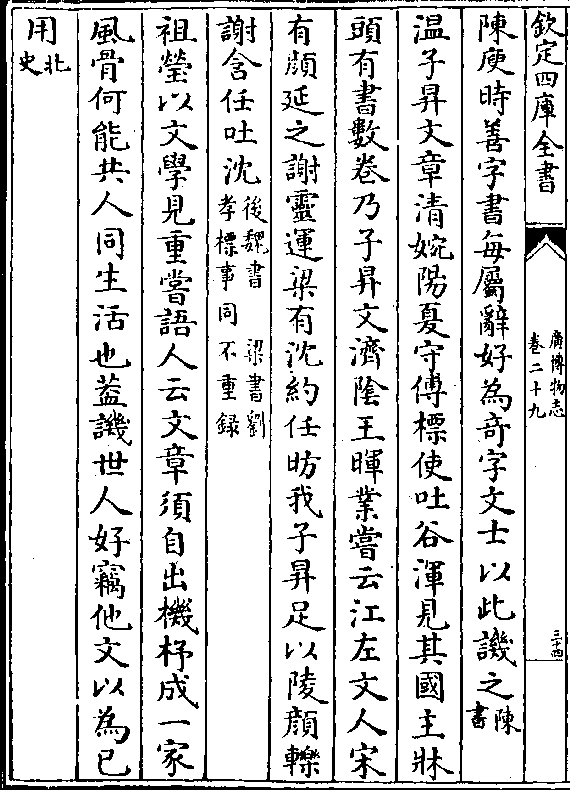 欽定四庫全書
廣博物志
卷二十九
三十四
陳庾時善字書每屬辭好為奇字文士以此譏之陳書
温子昇文章清婉陽夏守傅標使吐谷渾見其國主牀
頭有書數卷乃子昇文濟隂王暉業嘗云江左文人宋
有顔延之謝靈運梁有沈約任昉我子昇足以陵顔轢
謝含任吐沈後魏書 梁書劉孝標事同不重録
祖瑩以文學見重嘗語人云文章須自出機杼成一家
風骨何能共人同生活也葢譏世人好竊他文以為已
用北史